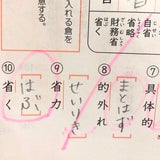 ⑦具体的
自省
省略
財務省
⑧的外れ
まとはず
⑨省力
せいりき
⑩省く
はぶ
入れる倉を
意する。